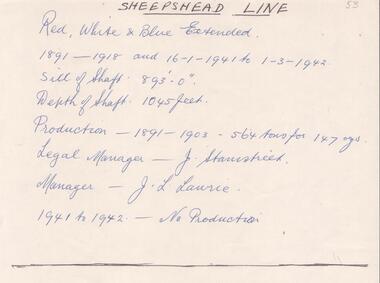 SHEEPSHEAD LINE
53
Red, White & Blue Extended.
1891 — 1918 and 16-1-1941 to 1-3-1942.
Sill of Shaft. 893'-0".
Depth of Shaft. 1045 feet.
Production — 1891 - 1903 - 564 tons for 147 ozs.
Legal Manager — J. Stanistreet.
Manager — J. L Lawrie.
1941 to 1942. — No Production